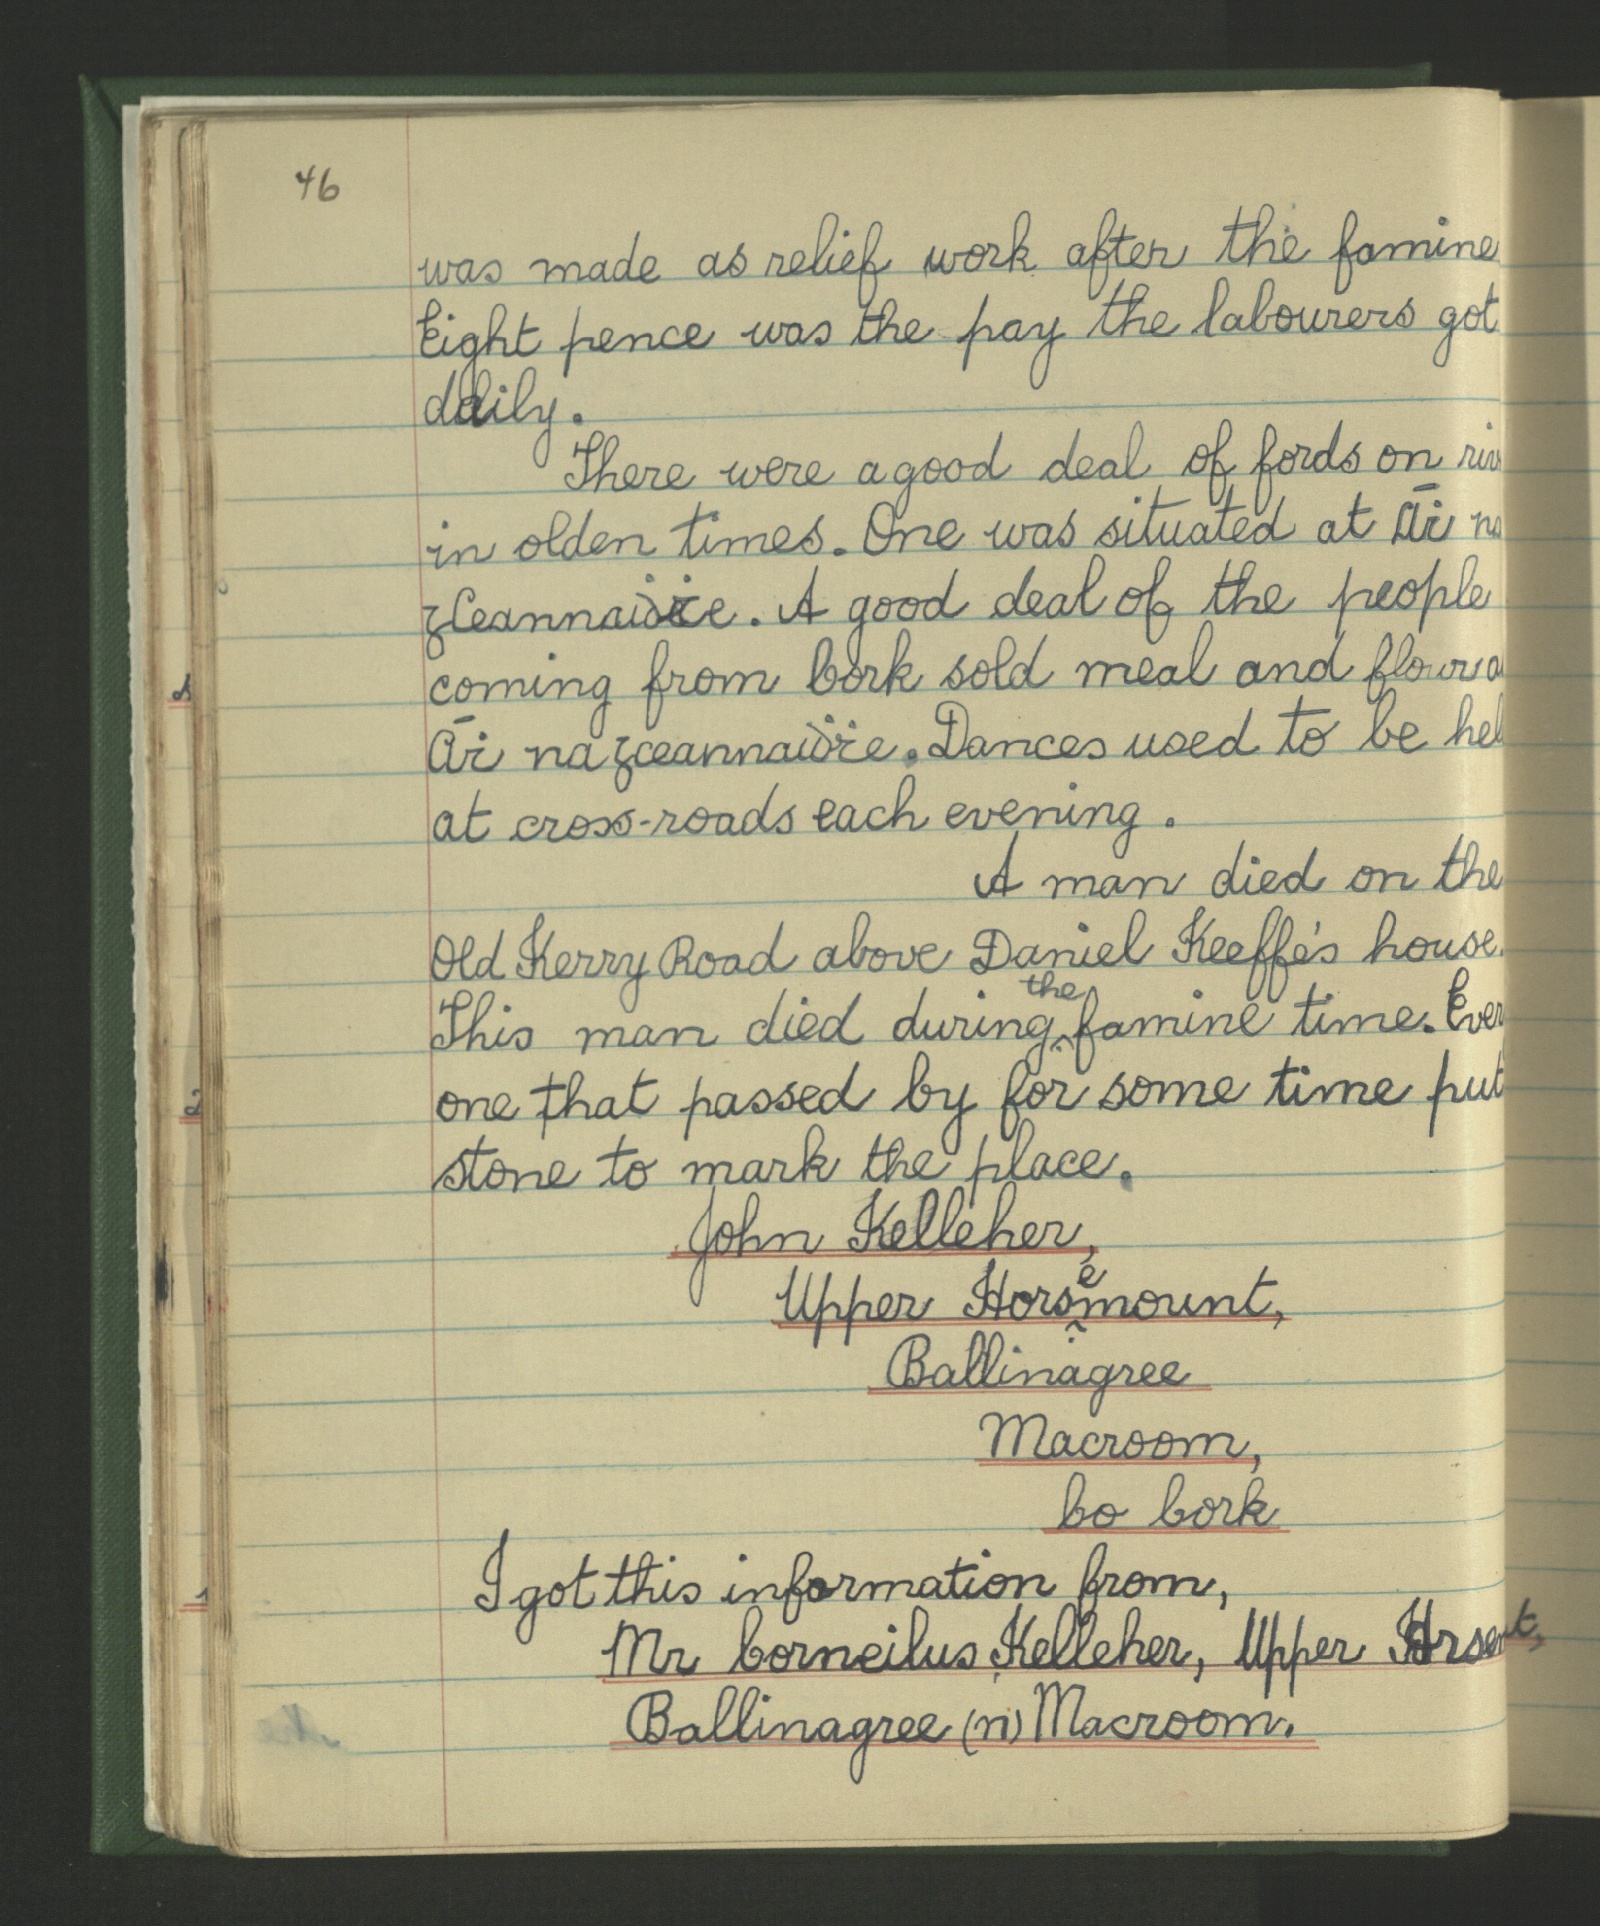 46
was made as relief work after the famine
Eight pence was the pay the labourers got
daily.
There were a good deal of fords on riv
in olden times. One was situated at Áṫ na
gCeannaiḋṫe. A good deal of the people
coming from Cork sold meal and flour a
Áṫ na gceannaiḋṫe. Dances used to be hel
at cross-roads each evening.
A man died on the
Old Kerry Road above Daniel Keeffe's house.
This man died during the famine time. Ever
one that passed by for some time put
stone to mark the place.
John Kelleher,
Upper Horsemount,
Ballinagree
Macroom,
Co Cork
I got this information from,
Mr Corneilus Kelleher, Upper Horsent,
Ballinagree (n) Macroom.